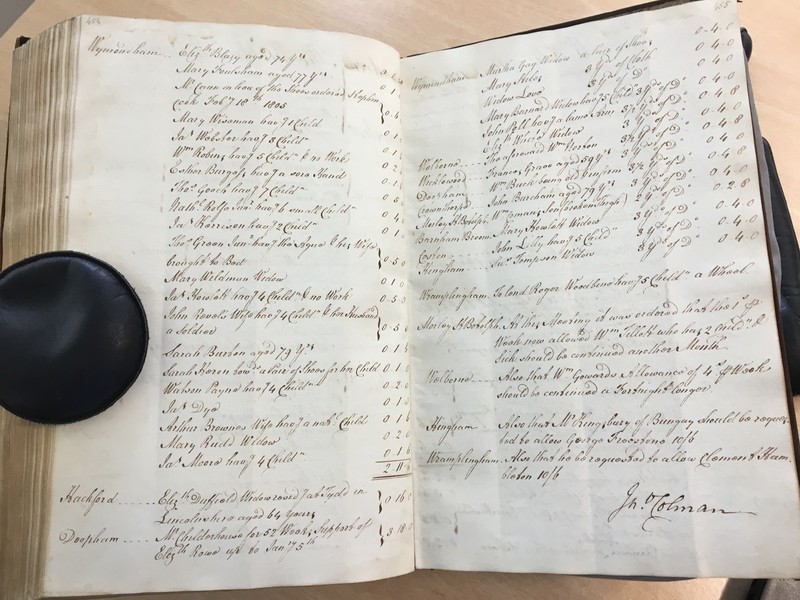 454
Wymondham Elizth Blazy aged 74 Yrs
Mary Foulsham aged 77 Yrs
Mr Cann in lieu of the Shoes ordered Stephen
Cook Feby 18th 1805
Mary Wiseman havg 1 Child
Jas Webster havg 3 Childn
Wm Robins havg 5 Childn & no Work
Esther Burgess havg a sore Hand
Thos Gooch havg 7 Childn
Nathl Rolfe Junr havg 6 small Childn
Jas Harrison havg 2 Childn
Thos Green Junr havg the Ague & his Wife
brought to Bed 0 5 0
Mary Weldman Widow 0 1 0
Jas Howlett havg 4 Childn & no Work
John Rooks's Wife havg 4 Childn & her Husband
a Soldier 0 5 0
Sarah Burdon aged 79 Yrs
Sarah Horen Widw a Pair of Shoes for her Child
Watson Payne havg 4 Childn 0 2 0
Jas Dye
Arthur Brownes Wife havg a natl Child 0 1 6
Mary Rudd Widow 0 2 0
Jas Moore havg 4 Childn 0 1 6
2 11
Hackford Elizth Duffield Widow resdg at Tydd in
Lincolnshire aged 64 Years 0 16 0
Deopham Mr Childerhouse for 52 Weeks Support of
Elizth Rowe up to Jany 5th 3 18 0
455
Wymondham Martha Gay Widow a Pair of Shoes 0-4-0
Mary Hide 3 Yds of Cloth 0 4 0
Widow Love 3 Yds of Do 0 4 0
Mary Barnard Widow havg 5 Childn 3 Yds of Do 0 4 0
John Bell havg a lame Arm 3½ Yds of Do 0 4 8
Elizth Widow 3 Yds of Do 0 4 0
Welborne Thos Wm Horton 3½ Yds of Do 0 4 8
Wicklewood Frances Grave aged 59 Yrs 3 Yds of Do 0 4 0
Deopham Wm Buck being old & infirm 3½ Yds of Do 0-4-8
Crownthorpe John Burcham aged 79 Yrs 3 Yds of Do 0-4-0
Morley St Botolph 2 Yds of Do 0-2-8
Barnham Broom Mary Howlett Widow 3 Yds of Do 0-4-0
Coston John Lilly havg 5 Childn 3 Yds of Do 0-4-0
Hingham Susn Tompson Widow 3 Yds of Do 0-4-0
Wramplingham To lend Roger Woodbine havg 5 Childn a Wheel
Morley St Botolph At this Meeting it was ordered that the 1s pr
Week now allowed Wm Tillett who has 2 Childn
Sick should be continued another Month
Welborne Also that Wm Gowards Allowance of 4s pr Week
should be continued a Fortnight longer
Hingham Also that Mr Kingsbury of Bungay should be reques-
ted to allow George Freestone 10/6
Wramplingham Also that he be requested to allow Clement Ham-
bleton 10/6
Jno Colman